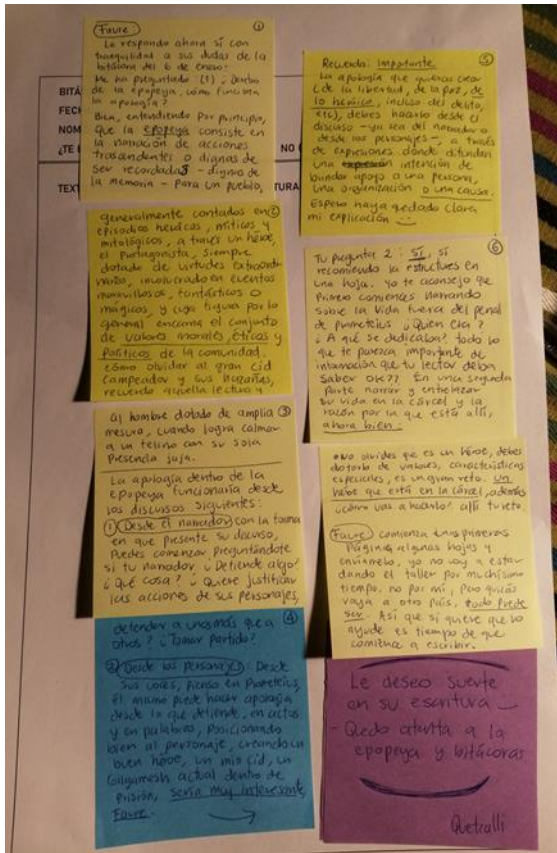 ①
Faure:
Le respondo ahora sí con
tranquilidad a sus dudas de la
bitácora del 6 de enero:
Me ha preguntado (1) ¿Dentro
de la epopeya, cómo funciona
la apología?
Bien, entendiendo por principio,
que la epopeya consiste en
la narración de acciones
trascendentes o dignas de
ser recordadas - digno de
la memoria - para un pueblo,
②
generalmente contados en
episodios heróicos, míticos y
mitológicos, a través un héroe,
el protagonista, siempre
dotado de virtudes extraordi
narias, involucrado en eventos
maravillosos, fantásticos o
mágicos, y cuya figura por lo
general encarna el conjunto
de valores morales, éticos y
políticos de la comunidad.
cómo olvidar al gran cid
campeador y sus hazañas,
recuerdo aquella lectura y
③
al hombre dotado de amplia
mesura, cuando logra calmar
a un felino con su sola
presencia jaja.
La apología dentro de la
epopeya funcionaría desde
los discursos siguientes:
① Desde el narrador con la forma
en que presente su discurso,
Puedes comenzar preguntándote
si tu narrador ¿Defiende algo?
¿qué cosa? ¿Quiere justificar
las acciones de sus personajes,
④
defender a unos más que a
otros? ¿Tomar partido?
② Desde los personajes: Desde
sus voces, pienso en Prometeius,
él mismo puede hacer apología
desde lo que defiende, en actos
y en palabras, Posicionando
bien al personaje, creando un
buen héroe, un mio cid, un
Gilgamesh actual dentro de
prisión, sería muy interesante,
Faure.
⑤
Recuerda: Importante
La apología que quieras crear
(de la libertad, de la paz, de
lo heróico, incluso del delito,
etc), debes hacerlo desde el
discurso - ya sea del narrador o
desde los personajes -, a través
de expresiones donde difundan
una intención de
brindar apoyo a una persona,
una organización o una causa.
Espero haya quedado clara
mi explicación
⑥
Tu pregunta 2: Sí, sí
recomiendo la estructures en
una hoja. Yo te aconsejo que
primero comiences narrando
sobre la vida fuera del penal
de prometeius ¿Quién era?
¿A qué se dedicaba? todo lo
que te parezca importante de
información que tu lector deba
saber OK?? En una segunda
parte narrar y entrelazar
su vida en la cárcel y la
razón por la que está allí,
ahora bien:
No olvides que es un héroe, debes
dotarlo de valores, características
especiales, es un gran reto. Un
héroe que está en la cárcel, además
¿cómo vas a hacerlo? allí tu reto.
Faure comienza unas primeras
Páginas algunas hojas y
envíamelo, yo no voy a estar
dando el taller por muchísimo
tiempo, no por mi, pero quizás
vaya a otro país, todo puede
ser. Así que si quiere que lo
ayude es tiempo de que
comience a escribir.
Le deseo suerte
en su escritura
- Quedo atenta a la
epopeya y bitácoras
Quetzalli
BITÁ
FECH
NOM
¿TE
NO
TEXT
TURA